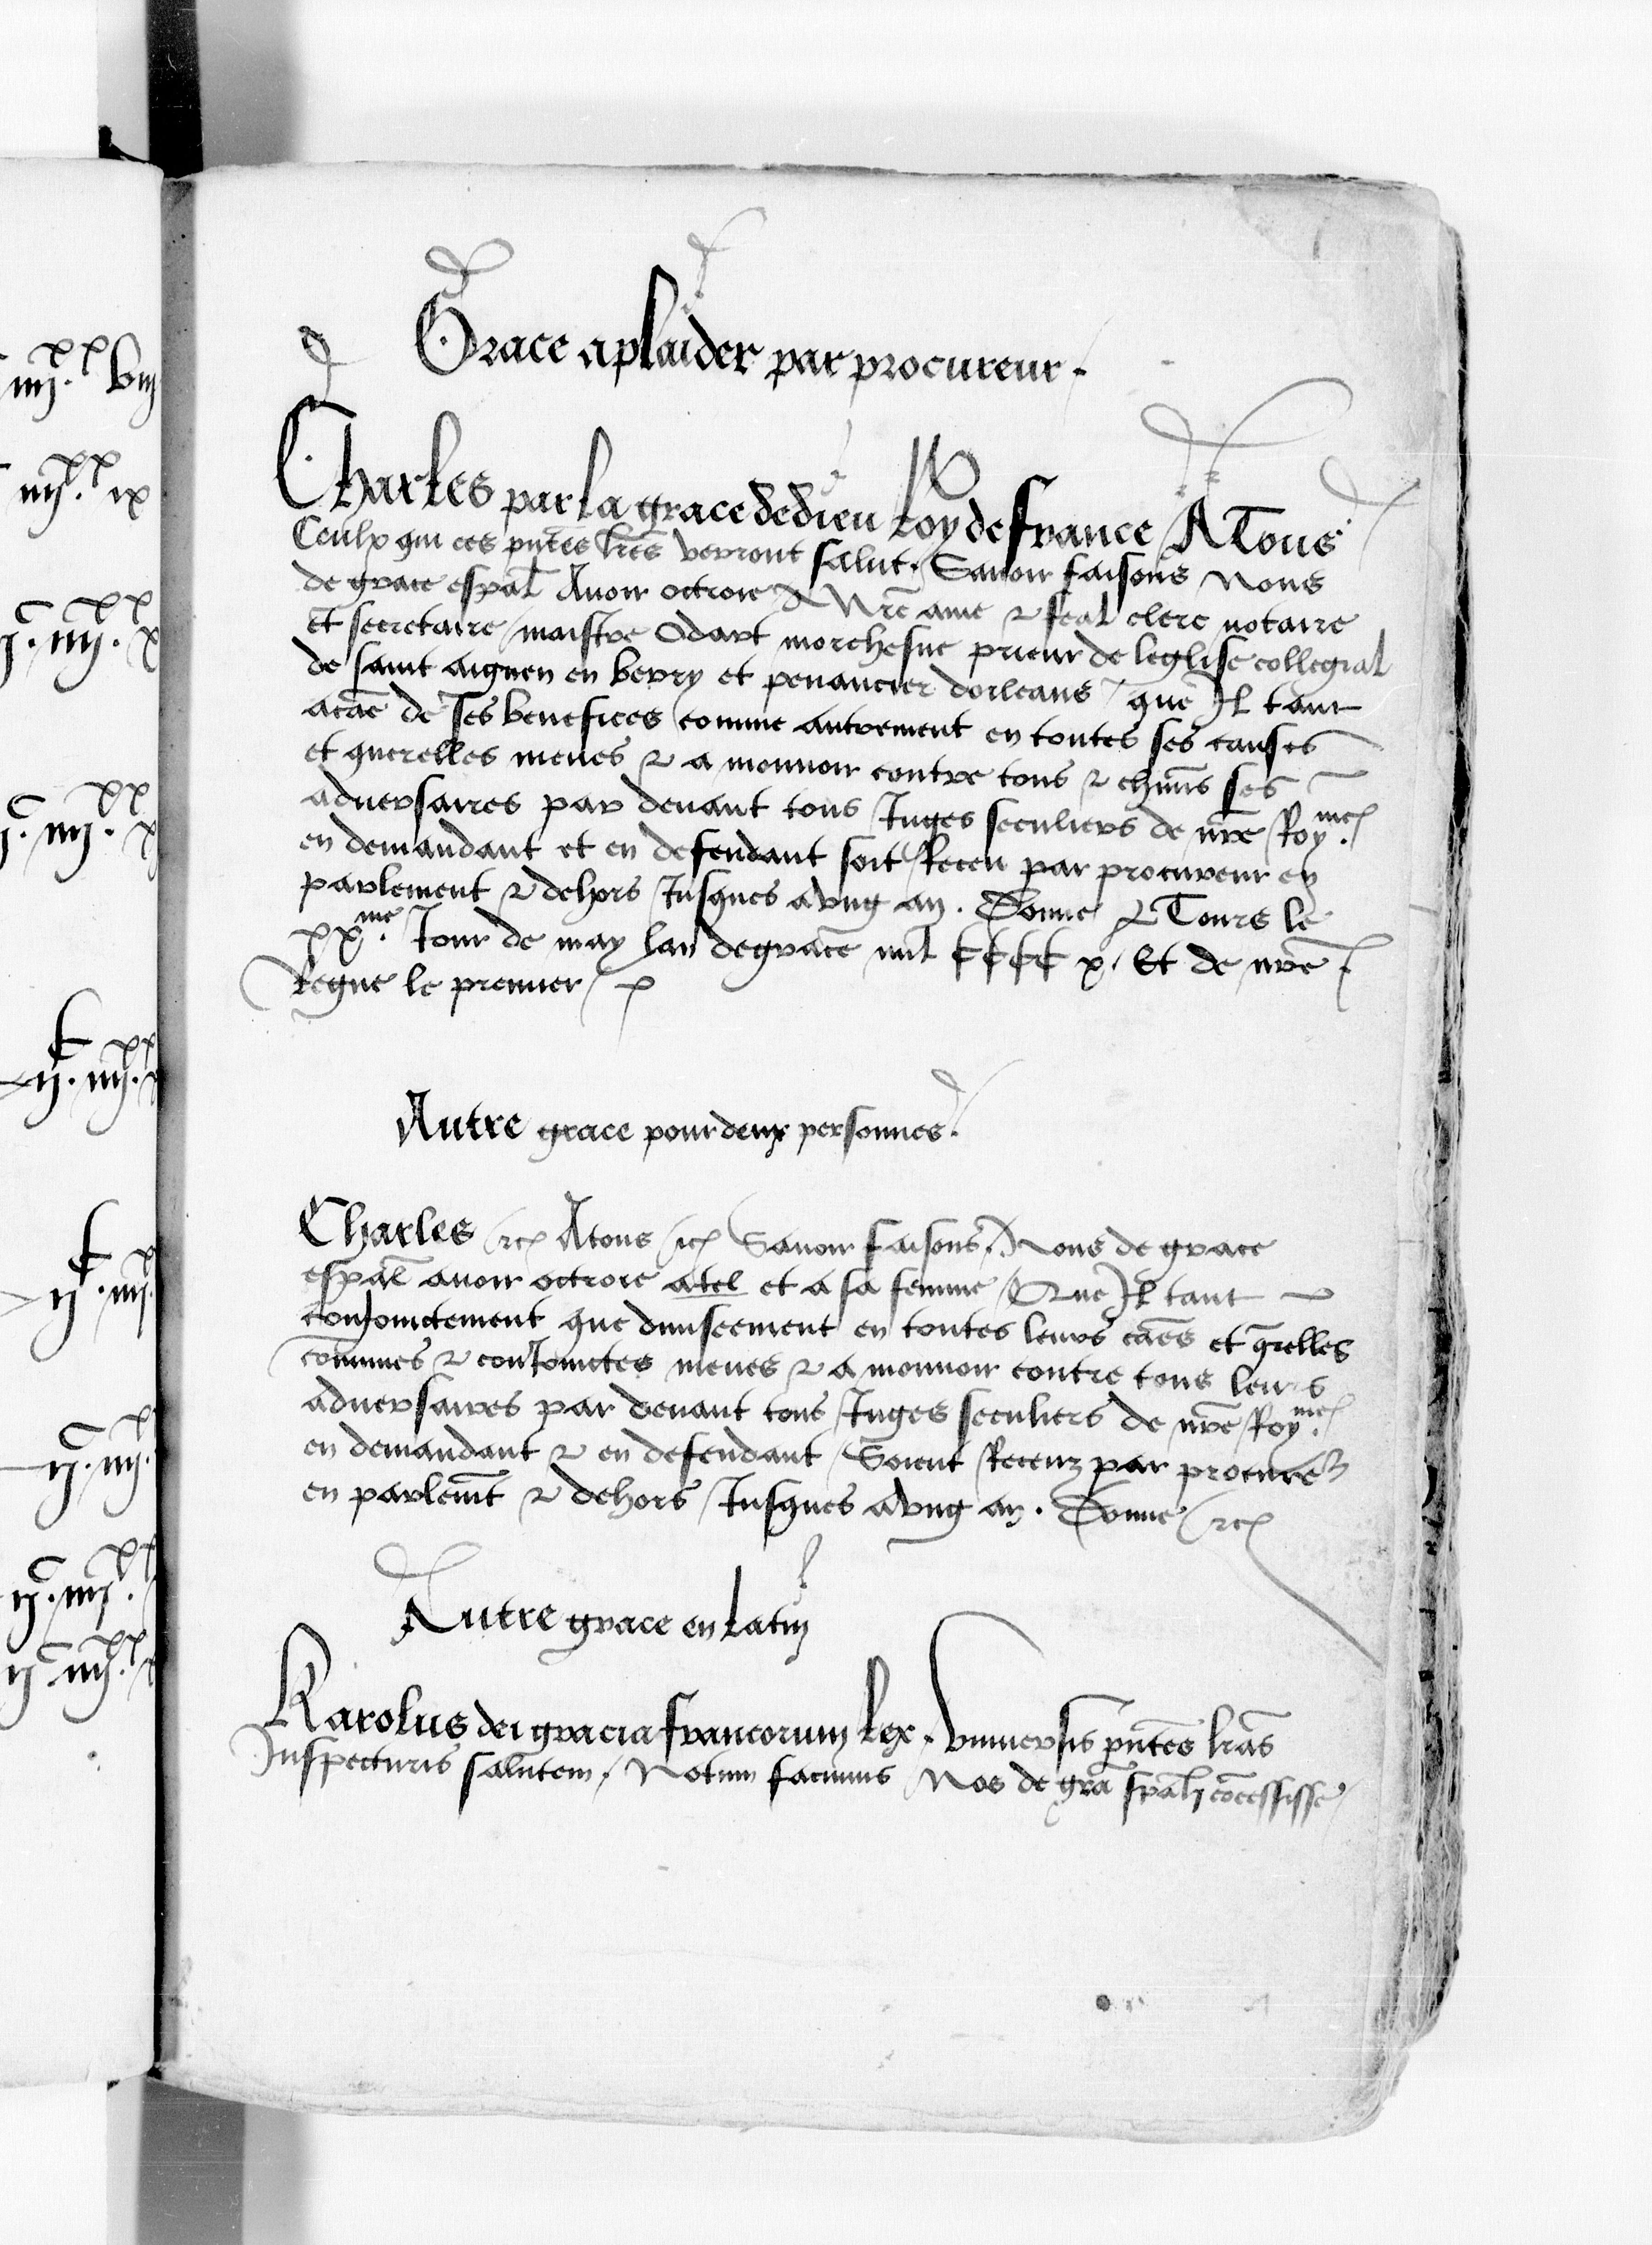 Grace a plaider par procureur.
Charles par la grace de dieu Roy de france A Tous
Ceulx qui ces pñtes lr̃es verront salut. Sauoir faisons Nous
de grace esp̃al Auoir octroie A Nr̃e ame & feal clerc notaire
Et secretaire maistre Odart morchesne prieur de leglise collegial
de saint aignen en berry et penancier dorleans que Il tant
a cãe de ses benefices comme autrement en toutes ses causes
et querelles meues & a mouuoir contre tous & chũns ses
aduersaires par deuant tous Juges seculiers de nr̃e Roy.me
en demandant et en defendant soit Receu par procureur en
parlement & dehors Jusques a vng an. Donne A Tours le
xx.me Jour de may lan de grace mil
Regne le premier
Autre grace pour deux personnes.
Charles &c A tous &c Sauoir faisons. Nous de grace
esp̃al auoir octroie a tel et a sa femme Que Il tant
conjoinctement que diuiseement en toutes leurs cães et q̃relles
com̃unes & conJoinctes meues & a mouuoir contre tous leurs
aduersaires par deuant tous Juges seculiers de nr̃e Roy.me
en demandant & en defendant Soient Receuz par procure
en parlem̃t & dehors Jusques a vng an. Donne &c
Autre grace en latin
Karolus dei gracia francorum Rex. vniuersis p̃ntes lr̃as
Inspecturis salutem. Notum facimus Nos de gr̃a sp̃ali cõcessisse